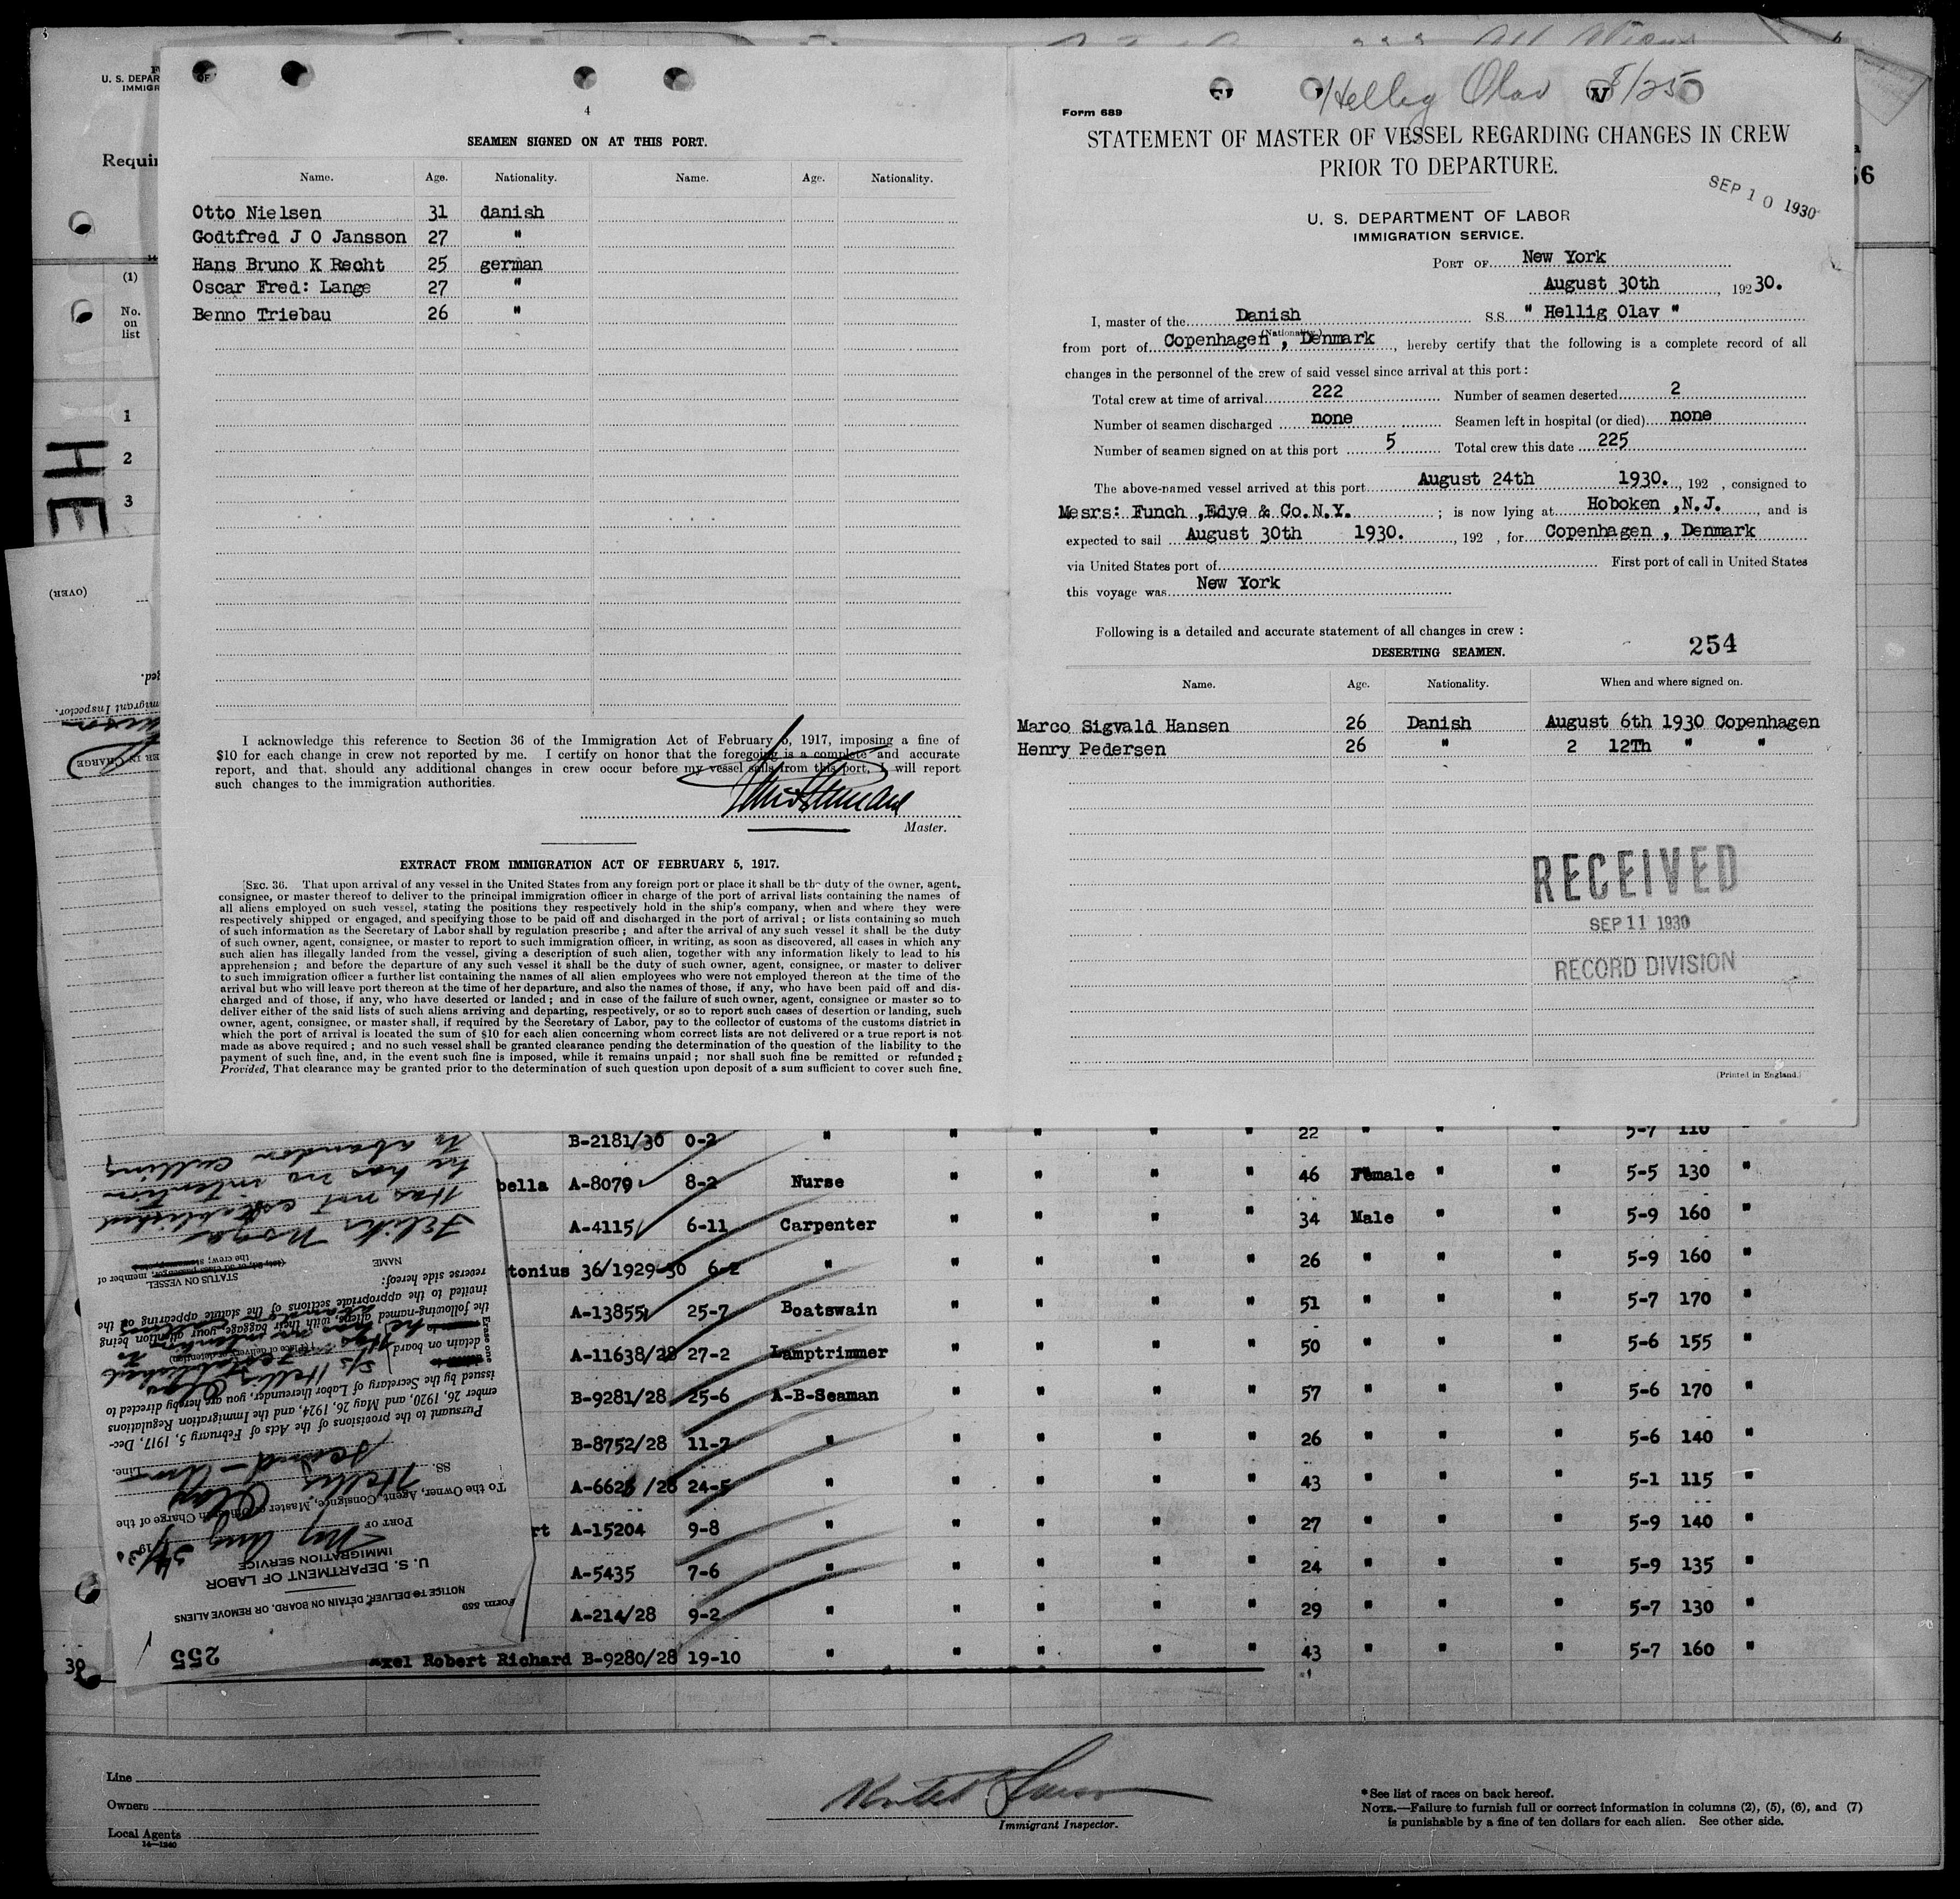 U. S. DEPAR
IMMIGR
Requi
(1)
No.
on
list
1
2
3
HE
4
SEAMEN SIGNED ON AT THIS PORT.
Name. Age. Nationality. Name. Age. Nationality.
Otto Nielsen 31 danish
Godtfred J O Jansson 27 "
Hans Bruno K Recht 25 german
Oscar Fred: Lange 27 "
Benno Triebau 26 "
I acknowledge this reference to Section 36 of the Immigration Act of February 5, 1917, imposing a fine of
$10 for each change in crew not reported by me. I certify on honor that the foregoing is a complete and accurate
report, and that should any additional changes in crew occur before my vessel sails from this port, I will report
such changes to the immigration authorities.
Master.
EXTRACT FROM IMMIGRATION ACT OF FEBRUARY 5, 1917.
[SEC. 36. That upon arrival of any vessel in the United States from any foreign port or place it shall be the duty of the owner, agent,
consignee, or master thereof to deliver to the principal immigration officer in charge of the port of arrival lists containing the names of
all aliens employed on such vessel, stating the positions they respectively hold in the ship's company, when and where they were
respectively shipped or engaged, and specifying those to be paid off and discharged in the port of arrival ; or lists containing so much
of such information as the Secretary of Labor shall by regulation prescribe ; and after the arrival of any such vessel it shall be the duty
of such owner, agent, consignee, or master to report to such immigration officer, in writing, as soon as discovered, all cases in which any
such alien has illegally landed from the vessel, giving a description of such alien, together with any information likely to lead to his
apprehension ; and before the departure of any such vessel it shall be the duty of such owner, agent, consignee, or master to deliver
to such immigration officer a further list containing the names of all alien employees who were not employed thereon at the time of the
arrival but who will leave port thereon at the time of her departure, and also the names of those, if any, who have been paid off and dis-
charged and of those, if any, who have deserted or landed ; and in case of the failure of such owner, agent, consignee or master so to
deliver either of the said lists of such aliens arriving and departing, respectively, or so to report such cases of desertion or landing, such
owner, agent, consignee, or master shall, if required by the Secretary of Labor, pay to the collector of customs of the customs district in
which the port of arrival is located the sum of $10 for each alien concerning whom correct lists are not delivered or a true report is not
made as above required ; and no such vessel shall be granted clearance pending the determination of the question of the liability to the
payment of such fine, and, in the event such fine is imposed, while it remains unpaid ; nor shall such fine be remitted or refunded :
Provided, That clearance may be granted prior to the determination of such question upon deposit of a sum sufficient to cover such fine.
Hellig Olav 8/25
Form 689
STATEMENT OF MASTER OF VESSEL REGARDING CHANGES IN CREW
PRIOR TO DEPARTURE.
SEP 10 1930
U. S. DEPARTMENT OF LABOR
IMMIGRATION SERVICE.
PORT OF New York
August 30th , 192 30.
I, master of the Danish S.S. " Hellig Olav "
(Nationality.)
from port of Copenhagen , Denmark , hereby certify that the following is a complete record of all
changes in the personnel of the crew of said vessel since arrival at this port :
Total crew at time of arrival 222 Number of seamen deserted 2
Number of seamen discharged none Seamen left in hospital (or died) none
Number of seamen signed on at this port 5 Total crew this date 225
The above-named vessel arrived at this port August 24th 1930. , 192 , consigned to
Mesrs: Funch ,Edye & Co.N.Y. ; is now lying at Hoboken ,N.J. , and is
expected to sail August 30th 1930. , 192 , for Copenhagen , Denmark
via United States port of First port of call in United States
this voyage was New York
Following is a detailed and accurate statement of all changes in crew :
DESERTING SEAMEN.
254
Name. Age. Nationality. When and where signed on.
Marco Sigvald Hansen 26 Danish August 6th 1930 Copenhagen
Henry Pedersen 26 " 2 12Th " "
RECEIVED
SEP 11 1930
RECORD DIVISION
(Printed in England.)
56
B-2181/30 0-2 " " " " " 22 " " " 5-7 110 "
bella A-8079 8-2 Nurse " " " " 46 Female " " 5-5 130 "
A-4115 6-11 Carpenter " " " " 34 Male " " 5-9 160 "
tonius 36/1929-30 6-2 " " " " " 26 " " " 5-9 160 "
A-13855 25-7 Boatswain " " " " 51 " " " 5-7 170 "
A-11638/28 27-2 Lamptrimmer " " " " 50 " " " 5-6 155 "
B-9281/28 25-6 A-B-Seaman " " " " 57 " " " 5-6 170 "
B-8752/28 11-7 " " " " " 26 " " " 5-6 140 "
/28 24-5 " " " " " 43 " " " 5-1 115 "
rt A-15204 9-8 " " " " " 27 " " " 5-9 140 "
A-5435 7-6 " " " " " 24 " " " 5-9 135 "
A-214/28 9-2 " " " " " 29 " " " 5-7 130 "
39 Axel Robert Richard B-9280/28 19-10 " " " " " 43 " " " 5-7 160 "
(OVER)
ged.
migrant Inspector.
ER IN CHARGE
255
Form 559
NOTICE TO DELIVER, DETAIN ON BOARD, OR REMOVE ALIENS
U. S. DEPARTMENT OF LABOR
IMMIGRATION SERVICE
PORT OF
To the Owner, Agent, Consignee, Master or Officer in Charge of the
SS. Hellig Olav
Line.
Pursuant to the provisions of the Acts of February 5, 1917, Dec-
ember 26, 1920, and May 26, 1924, and the Immigration Regulations
issued by the Secretary of Labor thereunder, you are hereby directed to
Erase one
detain on board
S/S Hellig Olav
(Place of delivery or detention)
the following-named aliens, with their baggage, your attention being
invited to the appropriate sections of the statute appearing on the
reverse side hereof:
NAME
STATUS ON VESSEL
member of
the crew;
Has not established
he has no intention
to abandon calling
Line
Owners
Local Agents
14—1240
Immigrant Inspector.
*See list of races on back hereof.
NOTE.—Failure to furnish full or correct information in columns (2), (5), (6), and (7)
is punishable by a fine of ten dollars for each alien. See other side.